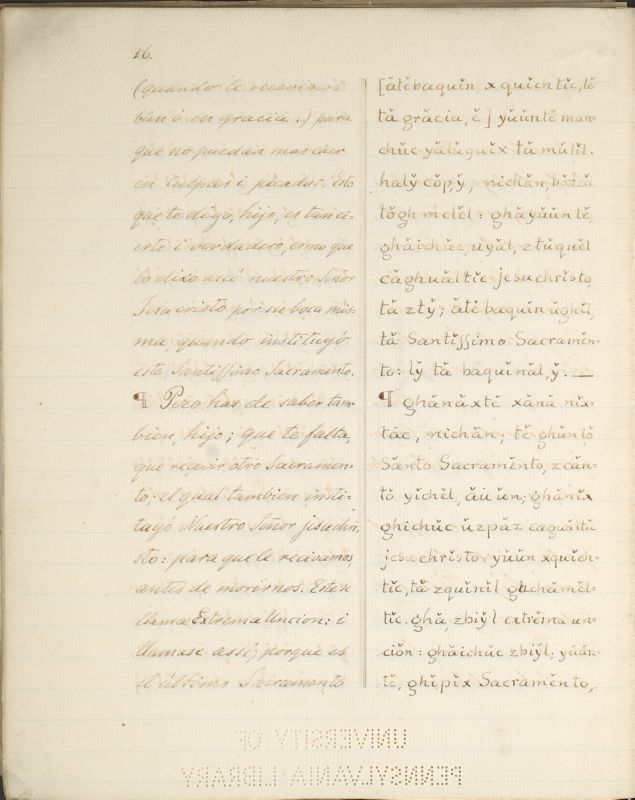 16.
(quando le recevimos
bien ó en gracia:) para
que no puedan mas caer
en culpas i pecados. Esto
que te digo, hijo, es tan ci-
erto i verdadero, como que
lo dixo assí nuestro Señor
Jesucristo por su boca mis=
ma, quando instituyó
este Santissimo Sacramento.
¶ Pero has de saber tam-
bien, hijo; que te falta,
que recevir otro Sacramen-
to; el qual tambien insti-
tuyó Nuestro Señor jesuchri,
sto: para que le recivamos,
antes de morirnos. Este se
llama Extrema Uncion: i
llamase assí; porque es
el último Sacramento
[ătĕbaquĭn x quĭch tĭc, tĕ
tă grăcia, ĕ] yŭŭntĕ man=
chŭc yălŭguĭx tă mŭlĭl.
halў cŏp,ў, nichăn,
tŏgh mclĕl: ghăyŭŭn tĕ,
ghăichŭc, uyăl, z tŭquĕl
căghuăltĭc jesuchrĭsto,
tă ztў; ătĕ baquĭn ŭghĭl,
tă Santĭssimo Sacramĕn-
to: lў tă baquĭnăl, ў. —
¶ ghănăxtĕ xănă nĭx-
tăc, nichăn; tĕ ghŭntŏ
Sănto Sacramĕnto, z căn=
tŏ yĭchĕl, ăuŭn; ghănĭx
ghichŭc ŭzpăz caguăltĭc
jesuchrĭsto: yŭŭn xquĭch-
tĭc, tă zquĭnĭl ghchămĕl-
tĭc. ghă, zbiўl extrĕma un=
ciŏn: ghăichŭc zbiўl; yŭŭn-
tĕ, ghĭpĭx Sacramĕnto,
UNIVERSITY OF
PENNSYLVANIA·LIBRARY